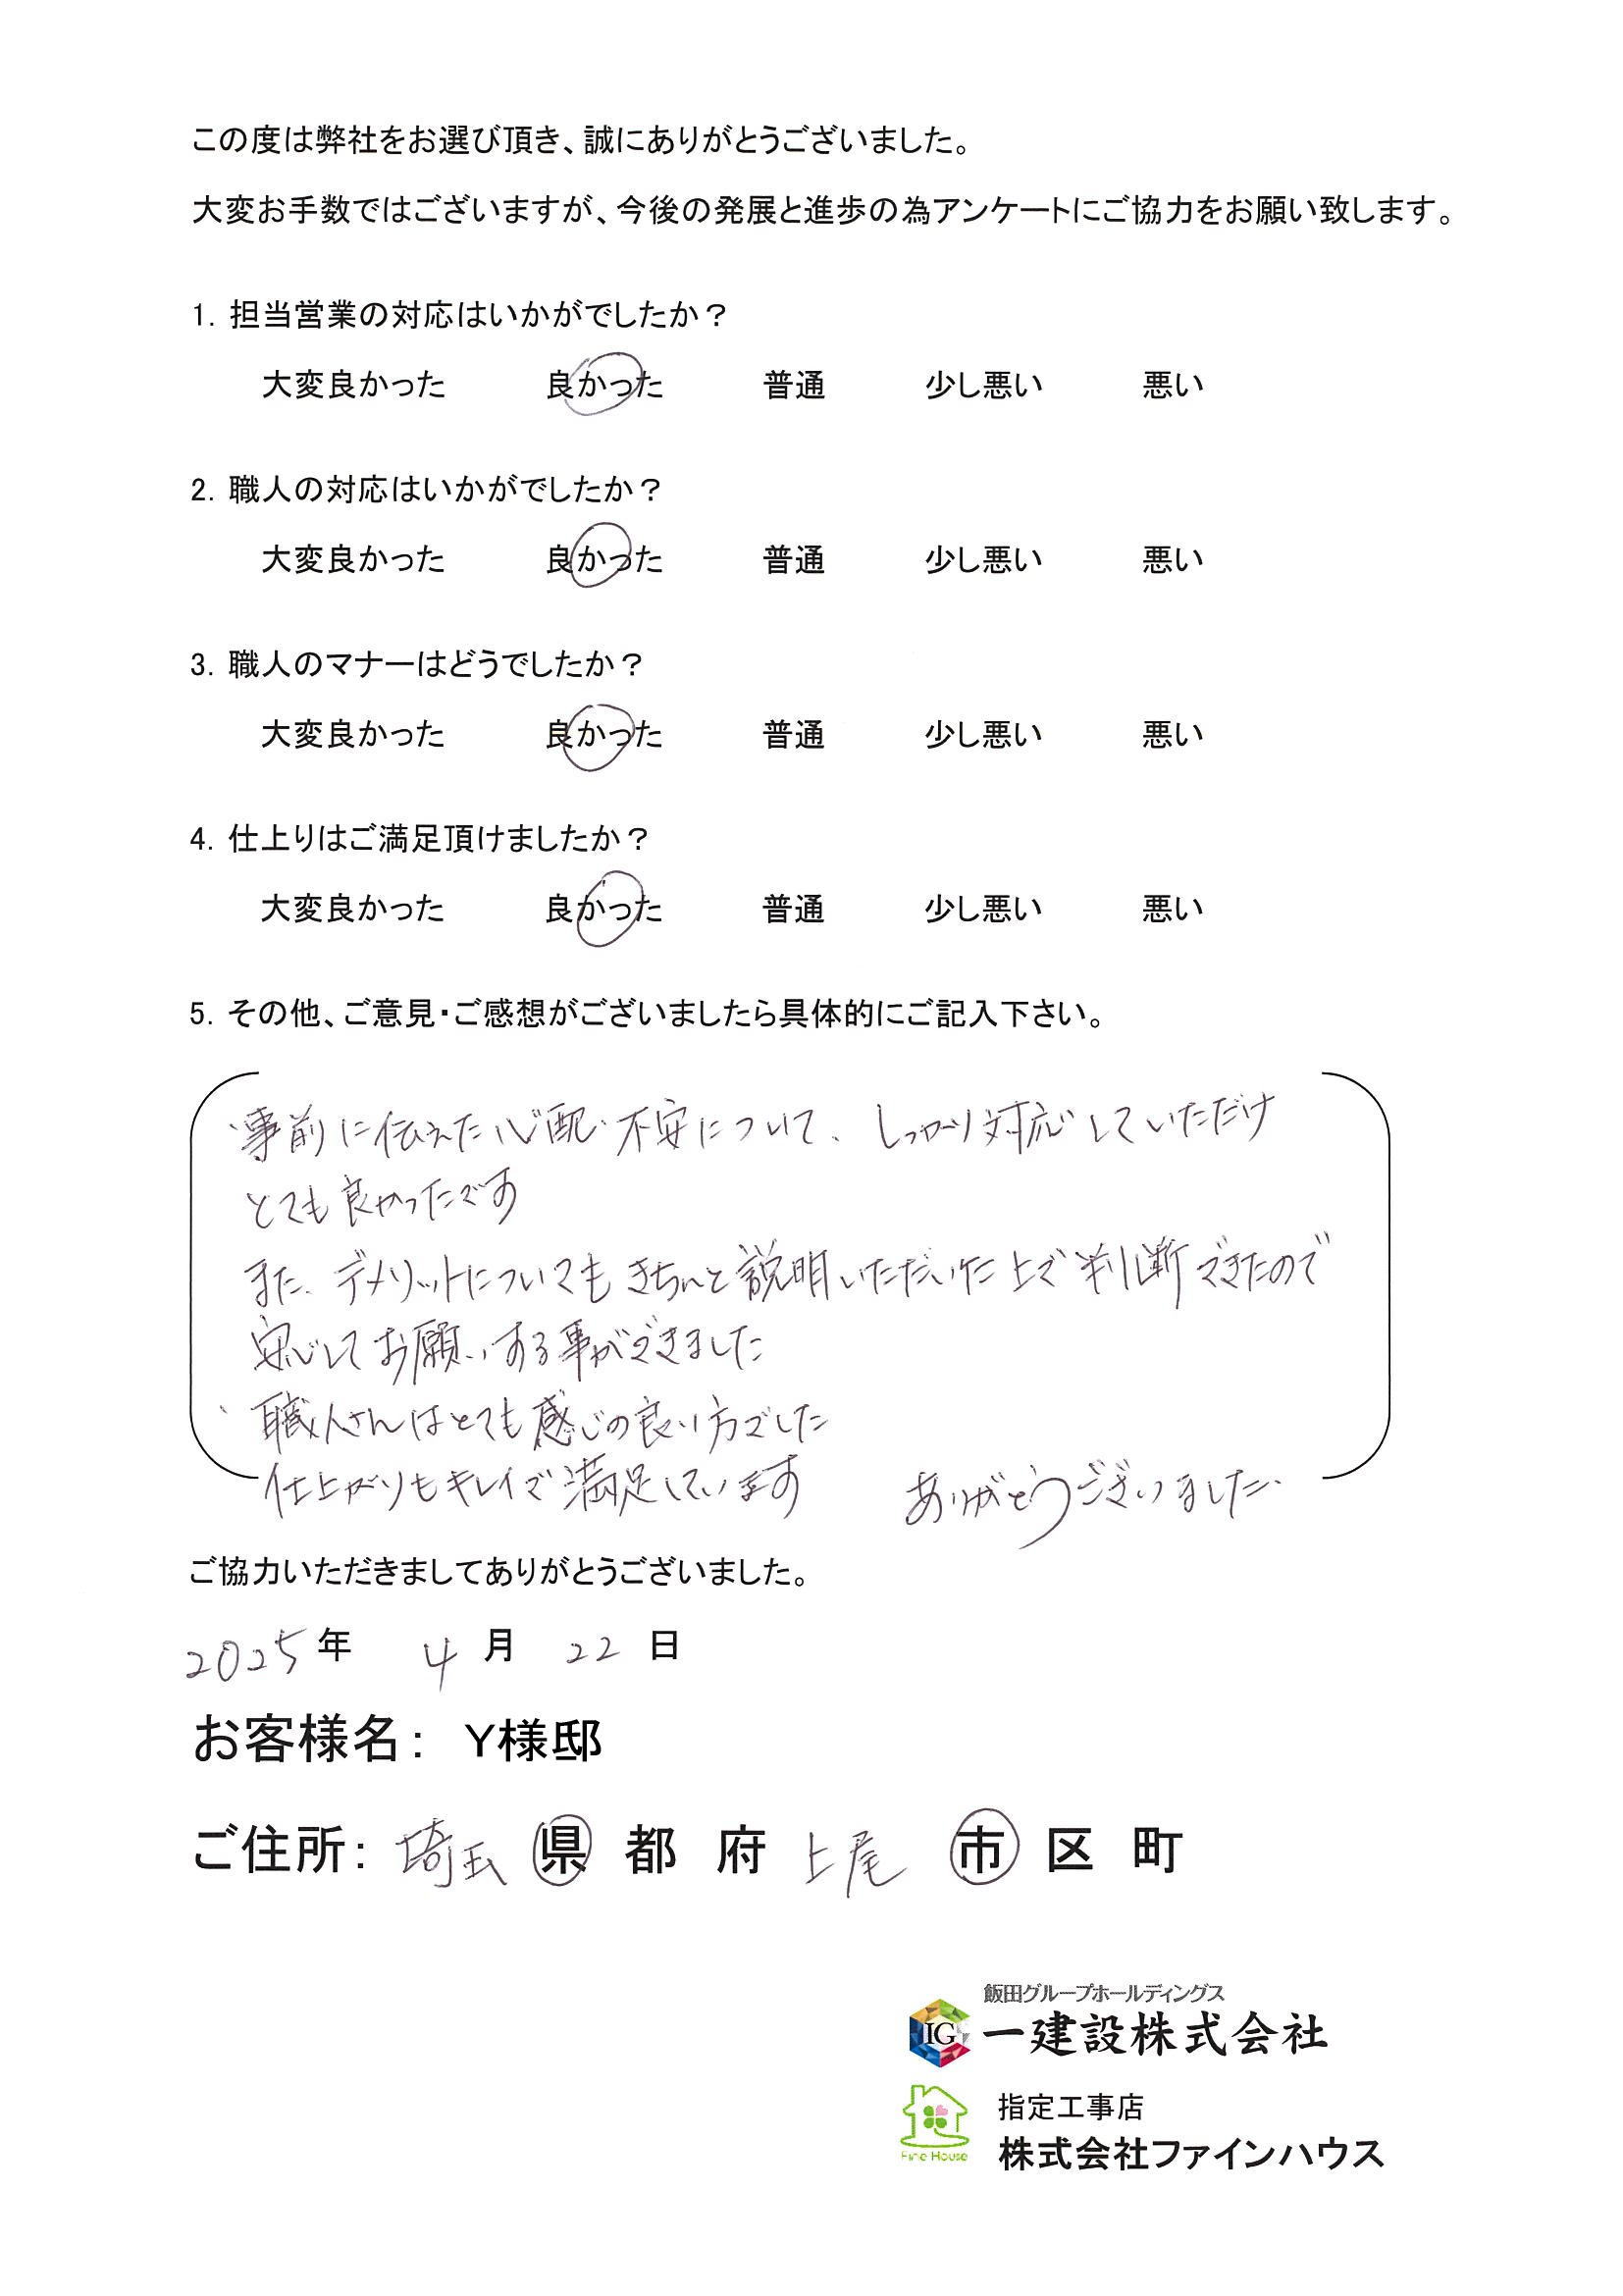 この度は弊社をお選び頂き、誠にありがとうございました。
大変お手数ではございますが、今後の発展と進歩の為アンケートにご協力をお願い致します。
1. 担当営業の対応はいかがでしたか？
大変良かった 良かった 普通 少し悪い 悪い
2. 職人の対応はいかがでしたか？
大変良かった 良かった 普通 少し悪い 悪い
3. 職人のマナーはどうでしたか？
大変良かった 良かった 普通 少し悪い 悪い
4. 仕上りはご満足頂けましたか？
大変良かった 良かった 普通 少し悪い 悪い
5. その他、ご意見・ご感想がございましたら具体的にご記入下さい。
・事前に伝えた心配・不安について、しっかり対応していただけ
とても良かったです
また、デメリットについてもきちんと説明いただいた上で判断できたので
安心してお願いする事ができました
・職人さんはとても感じの良い方でした
仕上がりもキレイで満足しています ありがとうございました.
ご協力いただきましてありがとうございました。
2025年 4月 22日
お客様名： Y様邸
ご住所：埼玉 県 都 府 上尾 市 区 町
飯田グループホールディングス
IG 一建設株式会社
指定工事店
Fine House 株式会社ファインハウス